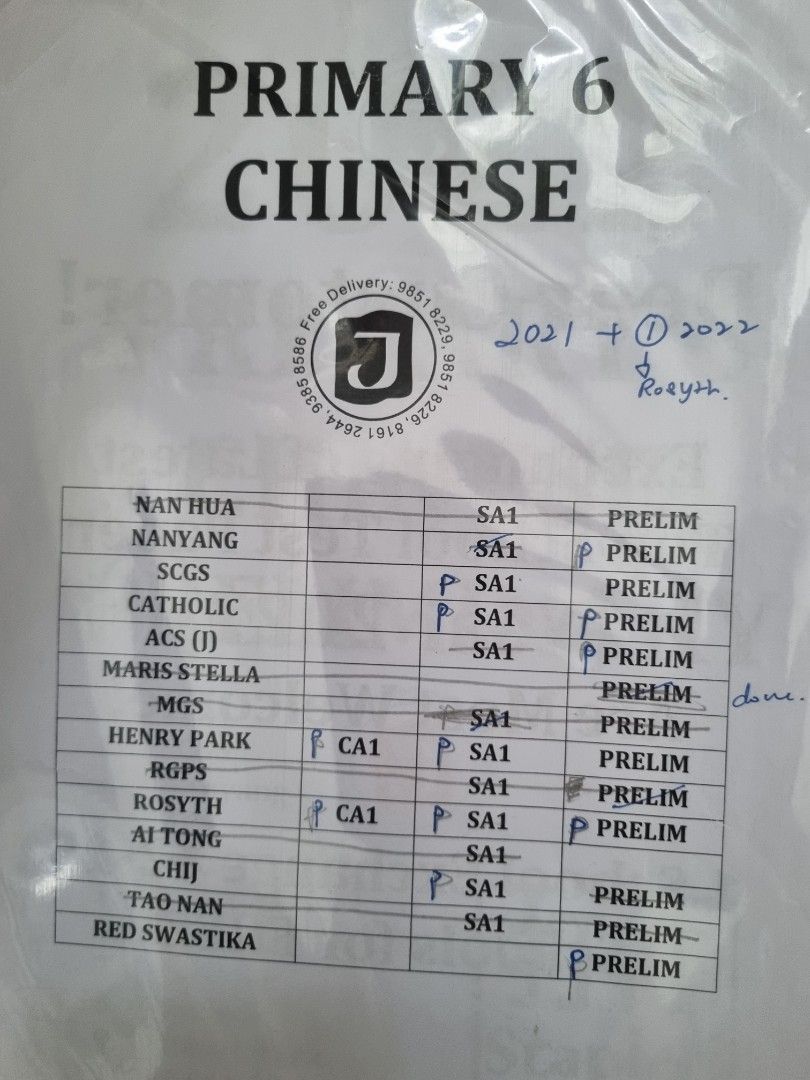 PRIMARY 6
CHINESE
Free Delivery: 9851 8229, 9851 8226, 8161 2644, 9385 8586
J
2021 + ① 2022
Rosyth.
NAN HUA SA1 PRELIM
NANYANG SA1 P PRELIM
SCGS P SA1 PRELIM
CATHOLIC P SA1 P PRELIM
ACS (J) SA1 P PRELIM
MARIS STELLA PRELIM done.
MGS SA1 PRELIM
HENRY PARK P CA1 P SA1 PRELIM
RGPS SA1 PRELIM
ROSYTH P CA1 P SA1 P PRELIM
AI TONG SA1
CHIJ P SA1 PRELIM
TAO NAN SA1 PRELIM
RED SWASTIKA P PRELIM